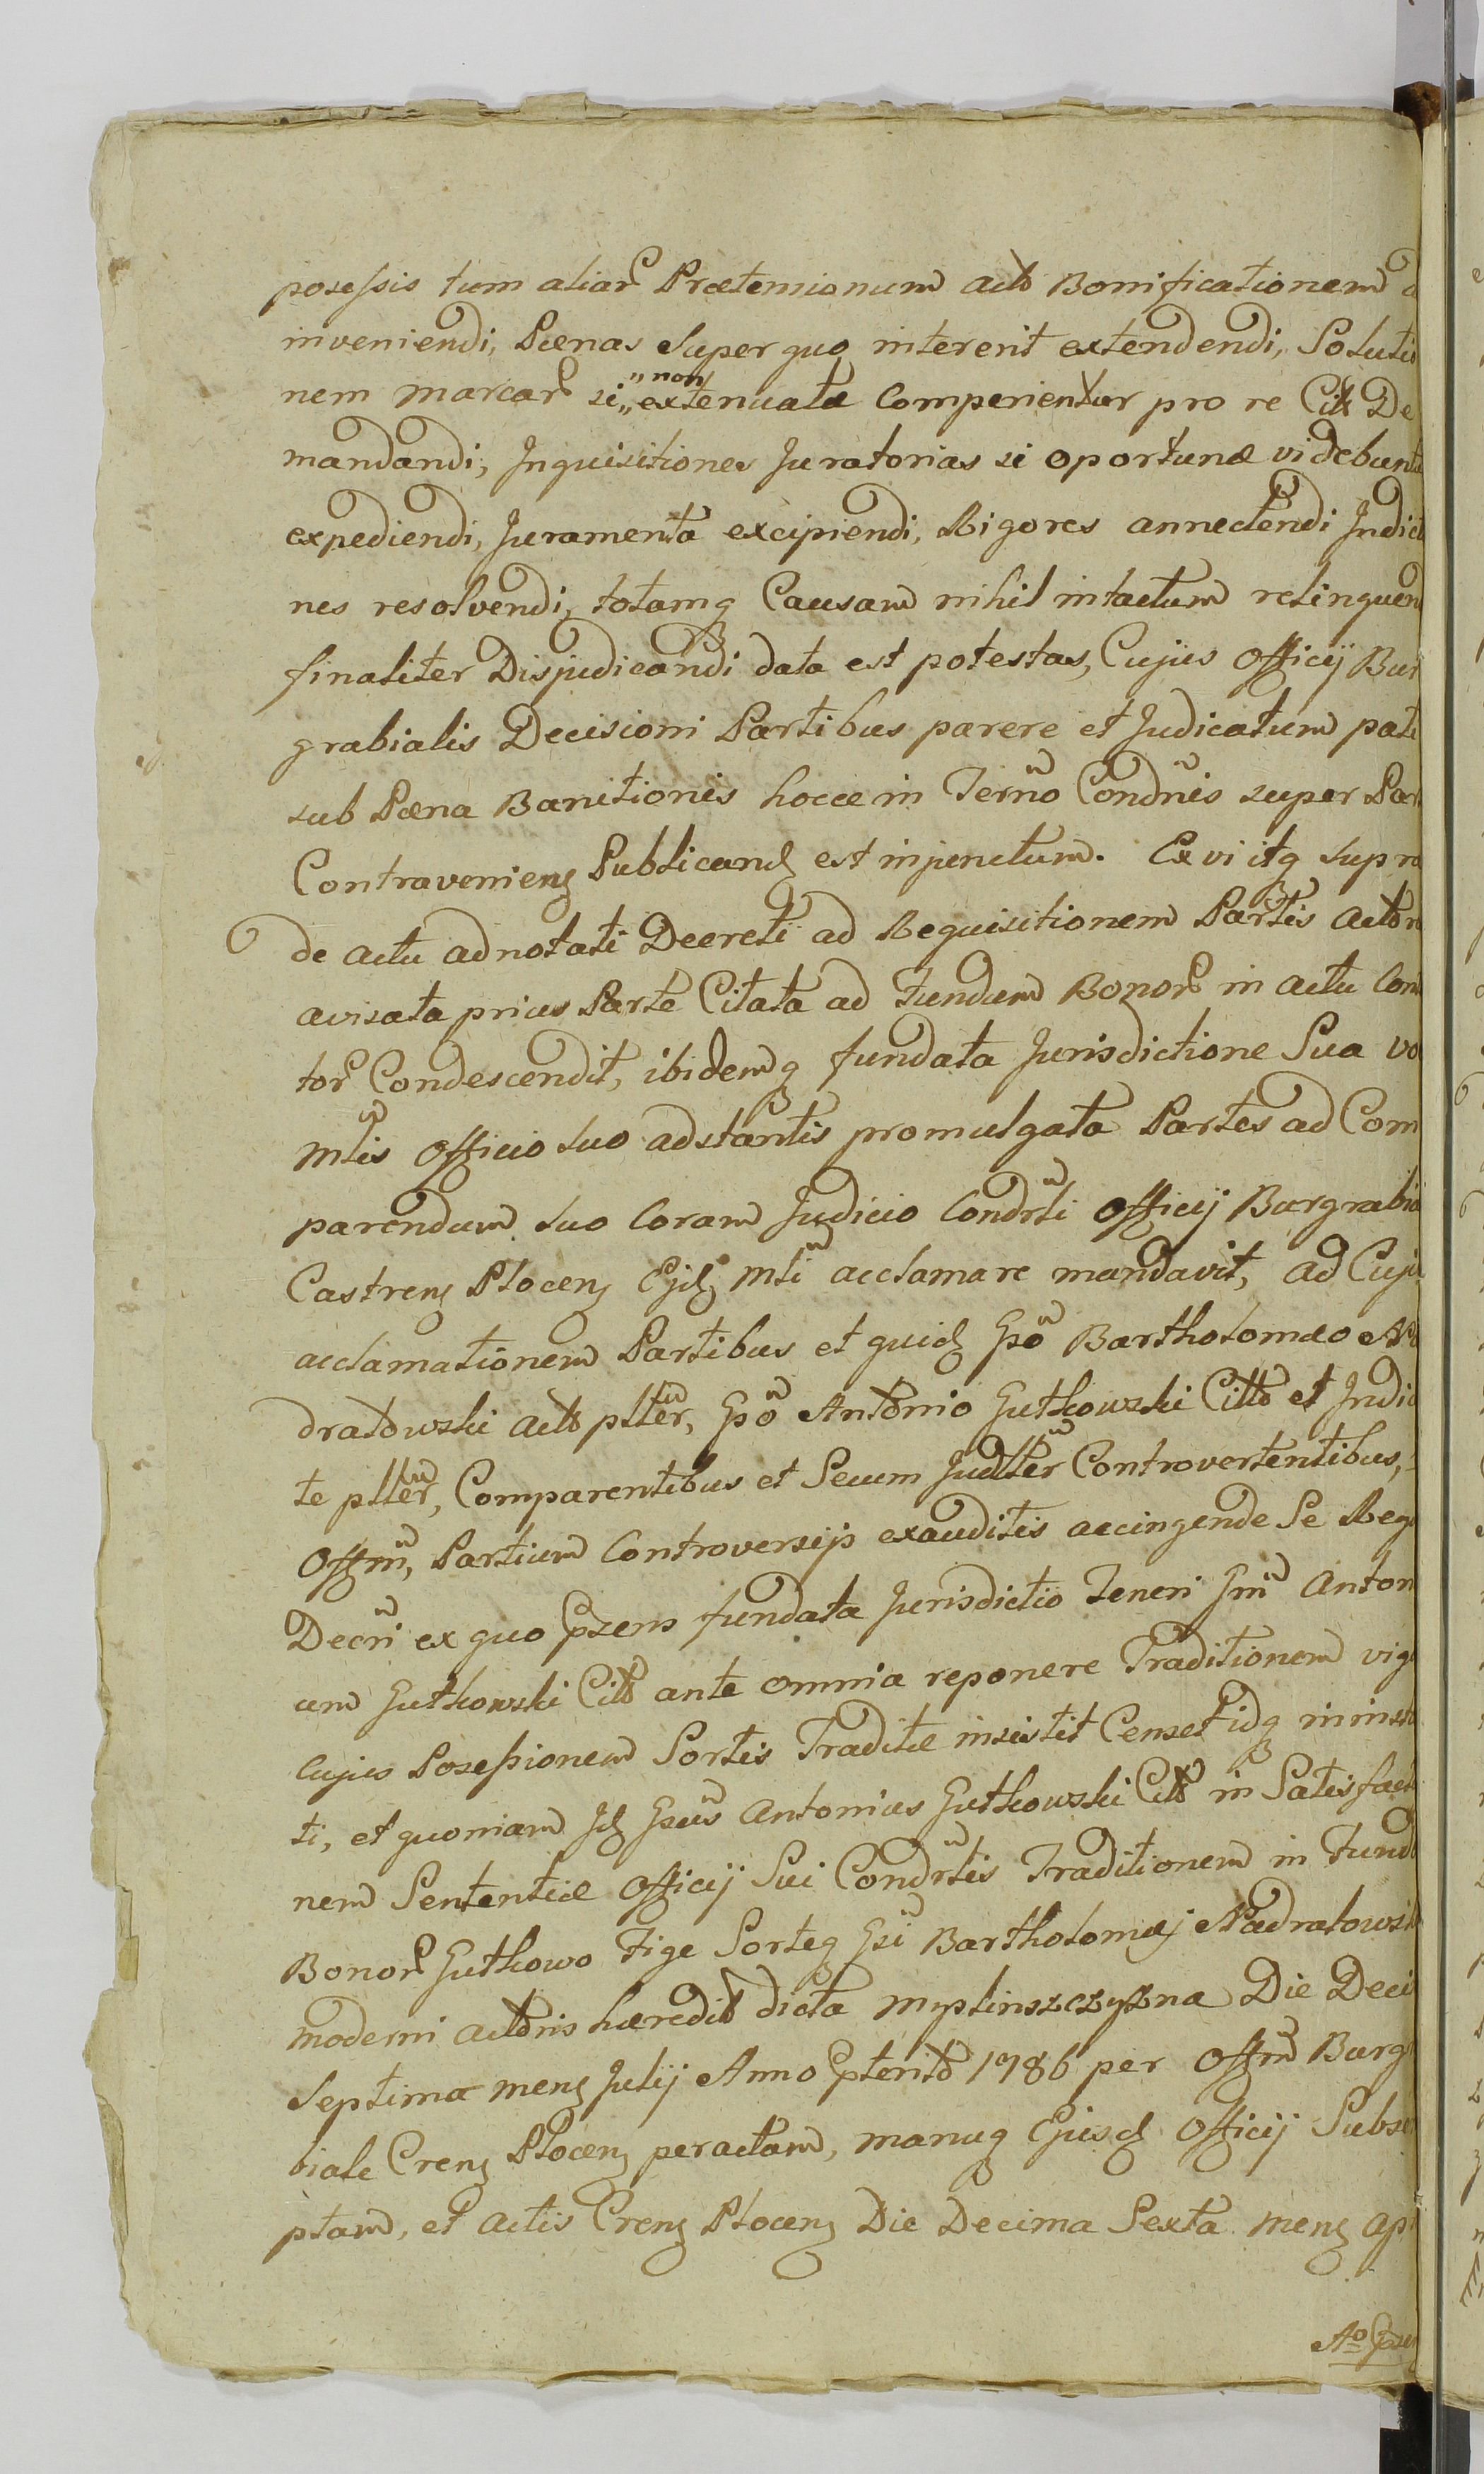 posessis tum aliar Prætensionum acto Bonificationem
inveniendi, Pænas super quo intererit extendendi, Soluti
nem marcar si „non„ extenuatæ Comperientur pro re Cit De
mandandi, Inquisitiones Juratorias si oportunæ videbunt
expediendi, Juramenta excipiendi, Rigores annectendi Indict
nes resolvendi, totamq Causam nihil intactum relinquen
finaliter Disjudicandi data est potestas, Cujus Officij Bur
grabialis Decisioni Partibus parere et Judicatum pati
sub Pæna Banitionis hocce in Termo Condnis super Par
Contraveniens Publicand est injunctum. Ex vi itq supra
de actu adnotati Decreti ad Requisitionem Partis acto
avisata prius Parte Citata ad Fundum Bonor in actu Con
tor Condescendit, ibidemq fundata Jurisdictione Sua vo
mlis Officio suo adstantis promulgata Partes ad Com
parendum suo Coram Judicio Condrli Officij Burgrabia
Castrens Plocens Ejd mli acclamare mandavit, ad Cuju
acclamationem Partibus et quid Gso Bartholomæo Na
dratowski acto plter, Gso Antonio Gutkowski Citto et Indic
te plter, Comparentibus et Secum Judlter Controvertentibus,
Offm, Partium Controversijs exauditis accingendo Se Reg
Decri ex quo Pzens fundata Jurisdictio Teneri Gm Anton
um Gutkowski Citt ante omnia reponere Traditionem vig
Cujus Posessionem Sortis Traditæ insistit Censet idq in inst
ti, et quoniam Id Gsus Antonius Gutkowski Citt in Satisfact
nem Sententiæ Officij Sui Condrlis Traditionem in Fund
Bonor Gutkowo Fige Sorteq Gsi Bartholomæj Nadratowsk
moderni actoris hæredit dicta myslinszczyzna Die Deci
Septima mens Julij Anno Pterito 1786 per Offm Burg
biale Crens Plocens peractam, manuq Ejusd Officij Subsc
ptam, et actis Crens Plocens Die Decima Sexta mens ap
Ao